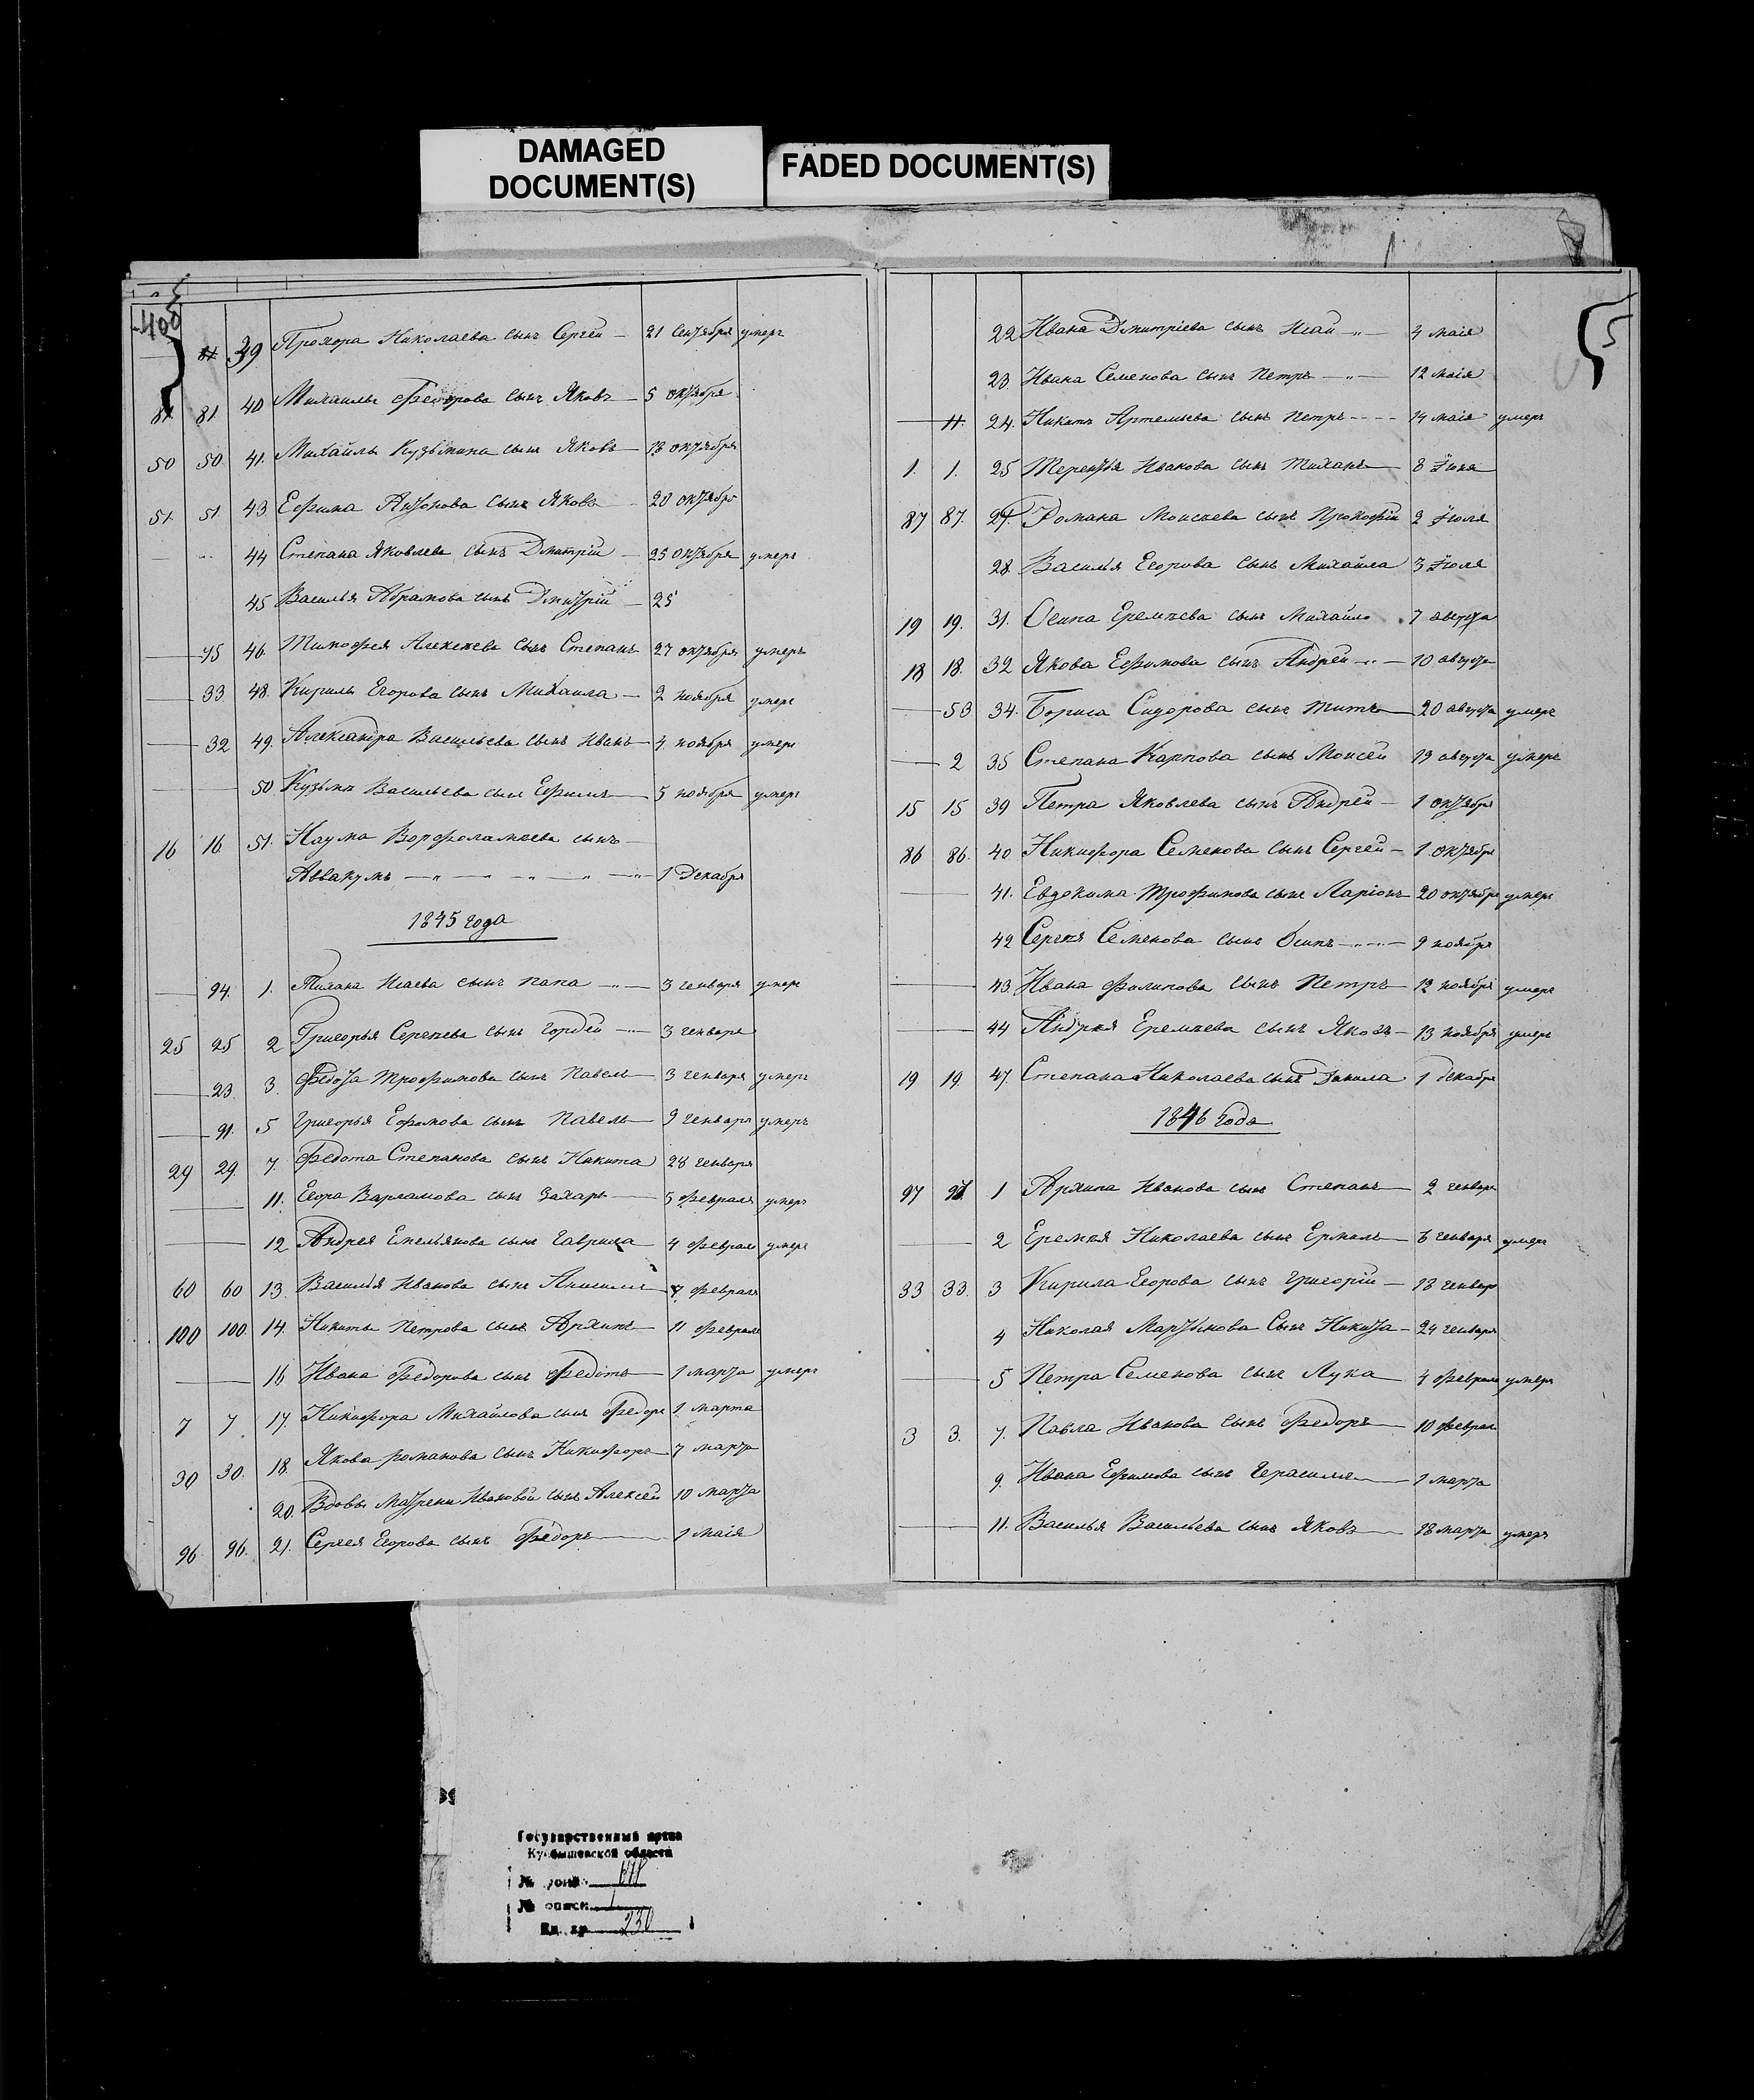 DAMAGED
DOCUMENT(S)
FADED DOCUMENT(S)
400
81 39 Прохора Николаева сынъ Сергей — 21 Сентября умеръ
81 81 40 Михайлы Федорова сынъ Яковъ — 5 октября
50 50 41. Михайлы Кузьмина сынъ Яковъ — 13 октября
51 51 43 Ефима Антонова сынъ Яковъ — 20 октября
44 Степана Яковлева сынъ Дмитрій — 25 октября умеръ
45 Василья Абрамова сынъ Дмитрій — 25
— 75 46 Тимофея Алексеева сынъ Степанъ 27 октября умеръ
— 33 48. Кирилы Егорова сынъ Михаила — 2 ноября умеръ
— 32 49. Александра Васильева сынъ Иванъ — 4 ноября умеръ
50 Кузьмы Васильева сынъ Ефимъ — 5 ноября умеръ
16 16 51. Наума Ворфоламеева сынъ —
Аввакумъ — 1 Декабря
1845 года
— 94. 1. Тихана Исаева сынъ папа — 3 генваря умеръ
25 25 2 Григорья Сергеева сынъ Гордей — 3 генваря
— 23 3. Федота Трофимова сынъ Павелъ — 3 генваря умеръ
— 91. 5 Григорья Ефимова сынъ Павелъ — 9 генваря умеръ
29 29 7. Федота Степанова сынъ Никита 28 генваря
— 11. Егора Варламова сынъ Захаръ — 3 февраля умеръ
— 12 Андрея Емельянова сынъ Гаврила — 4 февраля умеръ
60 60 13. Василья Иванова сынъ Анисимъ — 7 февраля
100 100 14. Никиты Петрова сынъ Архипъ — 11 февраля
— 16 Ивана Федорова сынъ Федотъ — 1 марта умеръ
7 7 17. Никифора Михайлова сынъ Федоръ 1 марта
30 30. 18. Якова романова сынъ Никифоръ — 7 марта
20. Вдовы Матрены Ивановой сынъ Алексей 10 марта
96 96. 21. Сергея Егорова сынъ Федоръ — 1 маія
5
22 Ивана Дмитріева сынъ Исай — 4 маія
23 Ивана Семенова сынъ Петръ — 12 маія
— 11. 24. Никиты Артемьева сынъ Петръ — 14 маія умеръ
1. 1. 25 Терентья Иванова сынъ Тиханъ — 8 Іюня
87 87. 27. Романа Моисеева сынъ Прокофій 2 Іюля
28 Василья Егорова сынъ Михайла 3 Іюля
19 19. 31. Осипа Еремеева сынъ Михайло 7 августа
18 18. 32 Якова Ефимова сынъ Андрей — 10 августа
— 53 34. Бориса Сидорова сынъ Титъ — 20 августа умеръ
— 2 35 Степана Карпова сынъ Моисей 19 августа умеръ
15 15 39 Петра Яковлева сынъ Андрей — 1 октября
86 86. 40 Никифора Семенова сынъ Сергей — 1 октября
— 41. Евдокима Трофимова сынъ Ларіонъ 20 октября умеръ
42 Сергея Семенова сынъ Осипъ — 9 ноября
— 43. Ивана Филипова сынъ Петръ — 12 ноября умеръ
— 44 Андрея Еремеева сынъ Яковъ — 13 ноября умеръ
19 19. 47. Степана Николаева сынъ Данила 1 декабря
1846 Года
97 97 1 Архипа Иванова сынъ Степанъ — 2 генваря
— 2 Еремея Николаева сынъ Ермилъ — 6 генваря умеръ
33 33. 3 Кирила Егорова сынъ Григорій — 18 генваря
4 Николая Мартынова Сынъ Никита — 24 генваря
— 5 Петра Семенова сынъ Лука — 4 февраля умеръ
3 3. 7. Павла Иванова сынъ Федоръ — 10 февраля
9. Ивана Ефимова сынъ Герасимъ — 1 марта
— 11. Василья Васильева сынъ Яковъ — 18 марта умеръ
Государственный архив
Куйбышевской области
№ фонда
№ описи 1
Ед. хр. 230